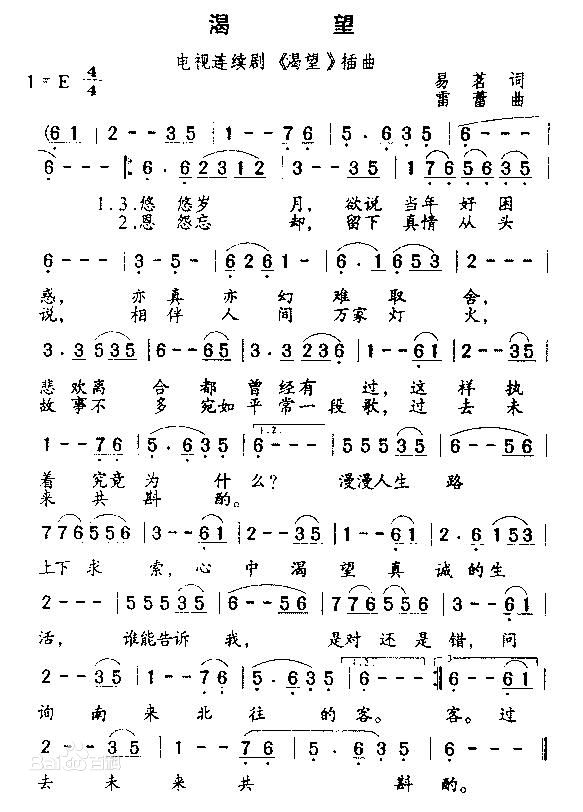 渴 望
电视连续剧《渴望》插曲
1=E 4/4
易 茗 词
雷 蕾 曲
(6 1 | 2 - - 3 5 | 1 - - 7 6 | 5 . 6 3 5 | 6 - - -
6 - - - ) |: 6 . 6 2 3 1 2 | 3 - - 3 5 | 1 7 6 5 6 3 5 |
1.3.悠 悠岁 月, 欲说 当年 好 困
2.恩 怨忘 却, 留下 真情 从 头
6 - - - | 3 - 5 - | 6 2 6 1 - | 6 . 1 6 5 3 | 2 - - - |
惑, 亦真 亦 幻 难 取 舍,
说, 相伴 人 间 万家 灯 火,
3 . 3 5 3 5 | 6 - - 6 5 | 3 . 3 2 3 6 | 1 - - 6 1 | 2 - - 3 5 |
悲 欢离 合都 曾经有 过,这样执
故 事不 多 宛如平常一段歌,过去未
1 - - 7 6 | 5 . 6 3 5 | 1.2. 6 - - - | 5 5 5 3 5 | 6 - - 5 6 |
着 究竟为 什么? 漫漫人生 路
来 共 斟 酌。
7 7 6 5 5 6 | 3 - - 6 1 | 2 - - 3 5 | 1 - - 6 1 | 2 . 6 1 5 3 |
上下 求 索,心 中 渴 望 真 诚 的 生
2 - - - | 5 5 5 3 5 | 6 - - 5 6 | 7 7 6 5 5 6 | 3 - - 6 1 |
活, 谁能告诉 我, 是对 还 是 错,问
2 - - 3 5 | 1 - - 7 6 | 5 . 6 3 5 | 1.2. 6 - - - :| 6 - - 6 1 |
询 南 来 北 往 的 客。 客。过
2 - - 3 5 | 1 - - 7 6 | 5 . 6 3 5 | 6 - - - | 6 - - - ‖
去 未 来 共 斟 酌。
Bai 百科